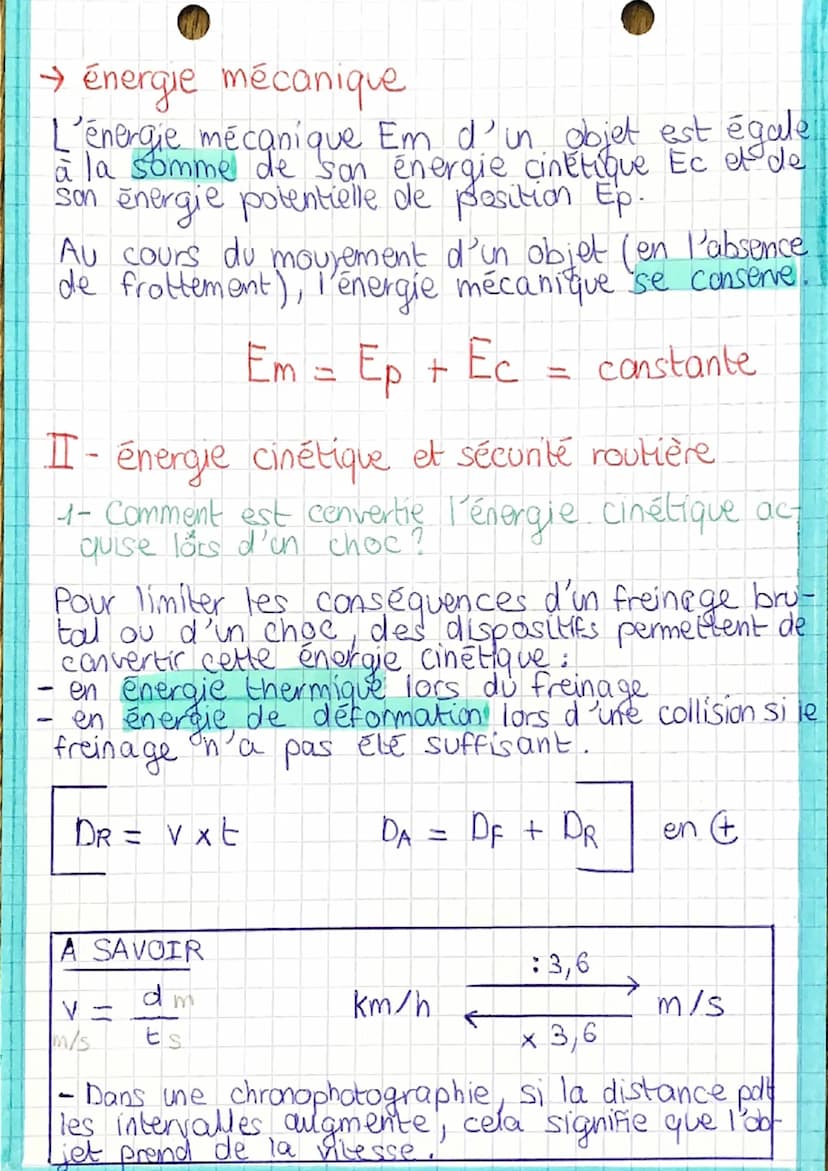 → énergie mécanique
L'énergie mécanique Em d'un objet est égale
à la somme de son énergie cinétique Ec et de
son énergie potentielle de position Ep.
Au cours du mouvement d'un objet (en l'absence
de frottement), l'énergie mécanique se conserve.
Em = Ep + Ec = constante
II - énergie cinétique et sécurité routière
1- Comment est convertie l'énergie cinétique ac-
quise lors d'un choc ?
Pour limiter les conséquences d'un freinage bru-
tal ou d'un choc, des dispositifs permettent de
convertir cette énergie cinétique :
- en énergie thermique lors du freinage
- en énergie de déformation lors d'une collision si le
freinage n'a pas été suffisant.
DR = v x t DA = DF + DR en +
A SAVOIR
: 3,6
v = d m / t s km/h m/s
m/s x 3,6
- Dans une chronophotographie, si la distance pdt
les intervalles augmente, cela signifie que l'ob-
jet prend de la vitesse.